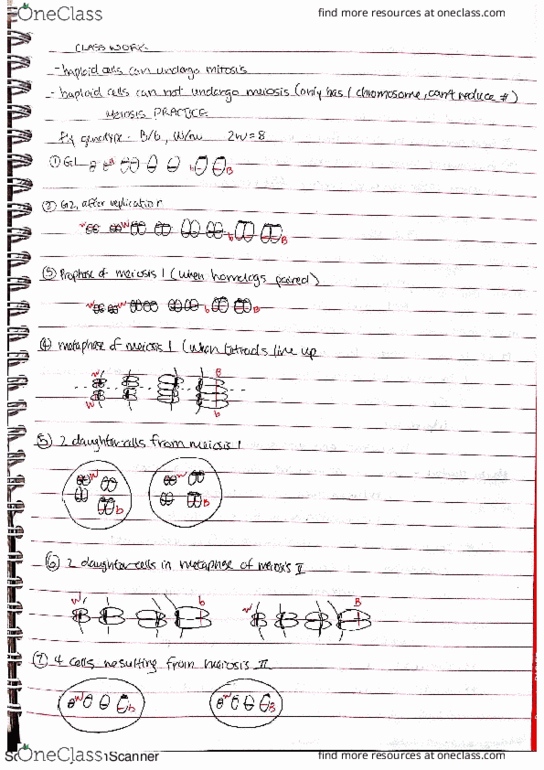 OneClass
find more resources at oneclass.com
CLASS WORK:
- haploid cells can undergo mitosis
- haploid cells can not undergo meiosis (only has 1 chromosome, can't reduce #)
MEIOSIS PRACTICE:
genotype - B/b, W/w 2n=8
① G1
b B
② G2, after replication
w W b B
③ Prophase of meiosis 1 (when homologs paired)
w W b B
④ metaphase of meiosis 1 (when tetrads line up
w B
W b
⑤ 2 daughter cells from meiosis 1
W w
b B
⑥ 2 daughter cells in metaphase of meiosis II
W b w B
⑦ 4 cells resulting from meiosis II
W b w B
OneClass Scanner
find more resources at oneclass.com